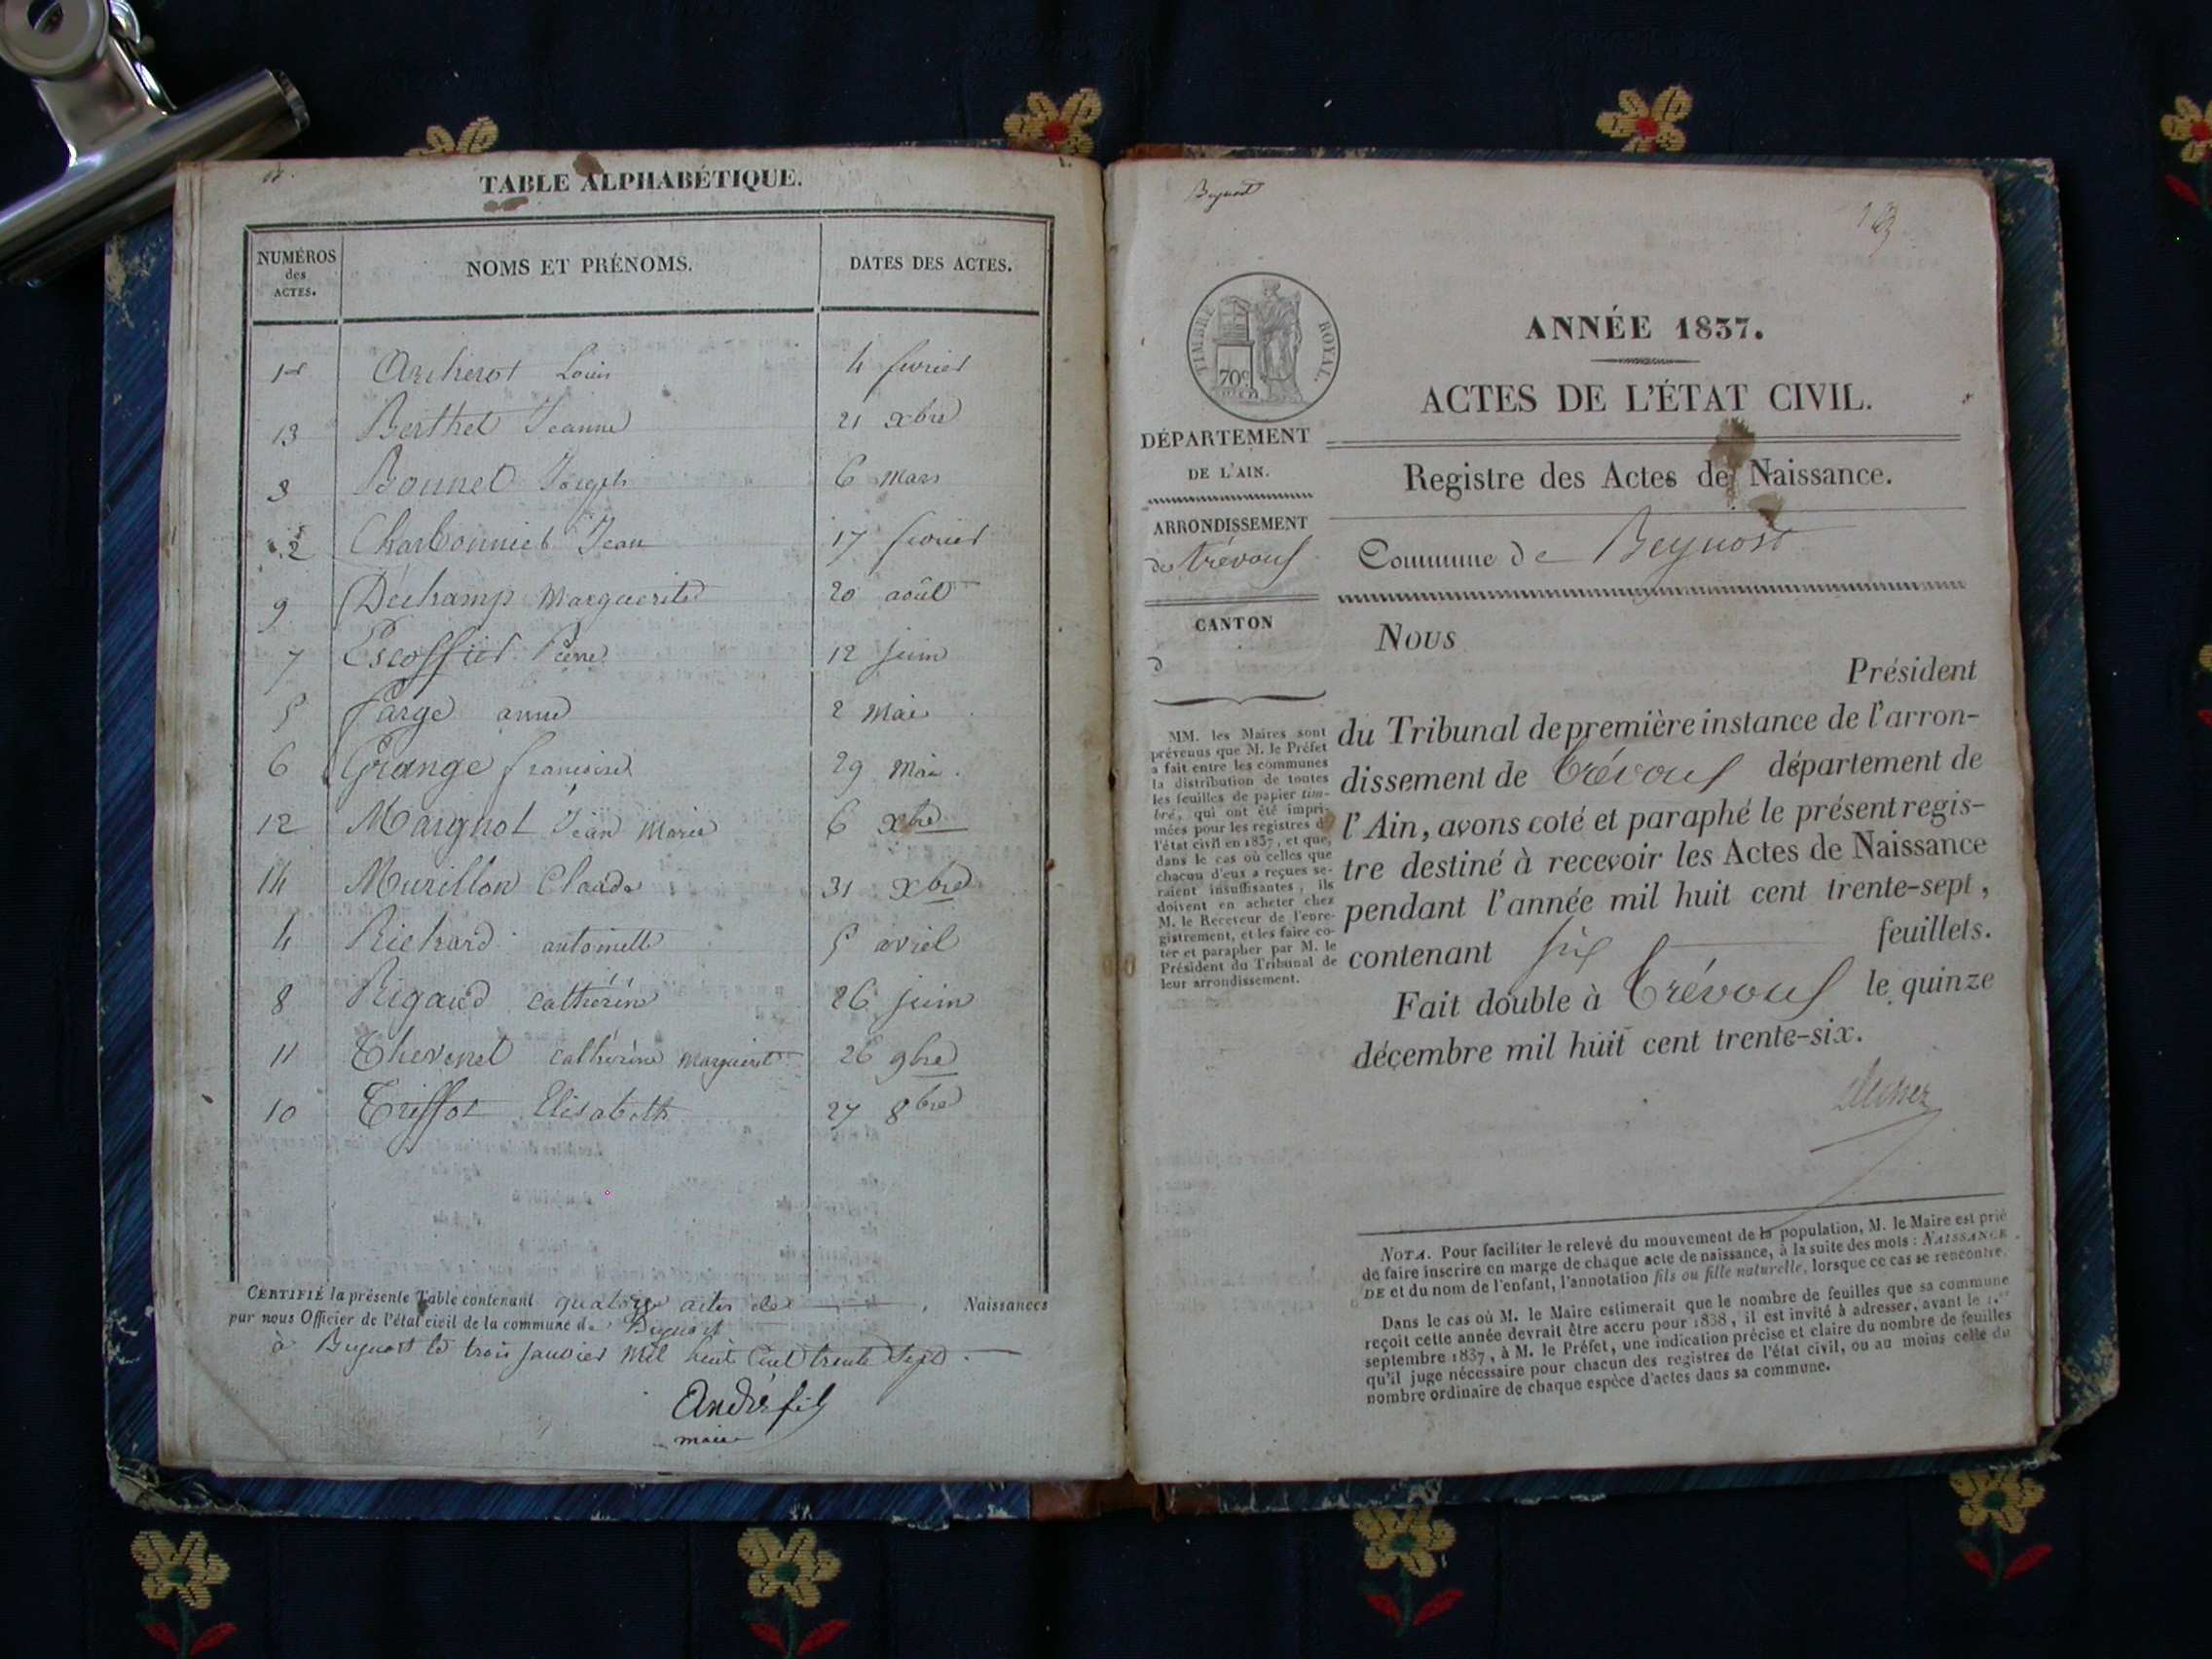 TABLE ALPHABÉTIQUE.
NUMÉROS des ACTES.
NOMS ET PRÉNOMS.
DATES DES ACTES.
1er Archerot Louis 4 fevrier
13 Berthet Jeanne 21 xbre
3 Bonnet Joseph 6 mars
2 Charbonnier Jean 17 fevrier
9 Déchamp Marguerite 20 août
7 Escoffier Pierre 12 juin
5 Farge anne 2 Mai
6 Grange francoise 29 Mai.
12 Maignot Jean Marie 6 xbre
14 Murillon Claude 31 xbre
4 Richard antoinette 5 avril
8 Rigaud catherine 26 juin
11 Thevenet cathérine Marguerite 26 9bre
10 Triffot Elisabeth 27 8bre
CERTIFIÉ la présente Table contenant quatorze actes de Naissances
par nous Officier de l'état civil de la commune de Beynost
à Beynost le trois janvier Mil huit Cent trente Sept.
André fils
maire
Beynost
TIMBRE ROYAL.
70c
ANNÉE 1837.
ACTES DE L'ÉTAT CIVIL.
Registre des Actes de Naissance.
Commune de Beynost
DÉPARTEMENT
DE L'AIN.
ARRONDISSEMENT
de Trévoux
CANTON
d
MM. les Maires sont
prévenus que M. le Préfet
a fait entre les communes
la distribution de toutes
les feuilles de papier tim-
bré, qui ont été impri-
mées pour les registres de
l'état civil en 1837, et que,
dans le cas où celles que
chacun d'eux a reçues se-
raient insuffisantes, ils
doivent en acheter chez
M. le Receveur de l'enre-
gistrement, et les faire co-
ter et parapher par M. le
Président du Tribunal de
leur arrondissement.
Nous
Président
du Tribunal de première instance de l'arron-
dissement de Trévoux département de
l'Ain, avons coté et paraphé le présent regis-
tre destiné à recevoir les Actes de Naissance
pendant l'année mil huit cent trente-sept,
contenant six feuillets.
Fait double à Trévoux le quinze
décembre mil huit cent trente-six.
NOTA. Pour faciliter le relevé du mouvement de la population, M. le Maire est prié
de faire inscrire en marge de chaque acte de naissance, à la suite des mots : NAISSANCE
DE et du nom de l'enfant, l'annotation fils ou fille naturelle, lorsque ce cas se rencontre.
Dans le cas où M. le Maire estimerait que le nombre de feuilles que sa commune
reçoit cette année devrait être accru pour 1838, il est invité à adresser, avant le 1.er
septembre 1837, à M. le Préfet, une indication précise et claire du nombre de feuilles
qu'il juge nécessaire pour chacun des registres de l'état civil, ou au moins celle du
nombre ordinaire de chaque espèce d'actes dans sa commune.